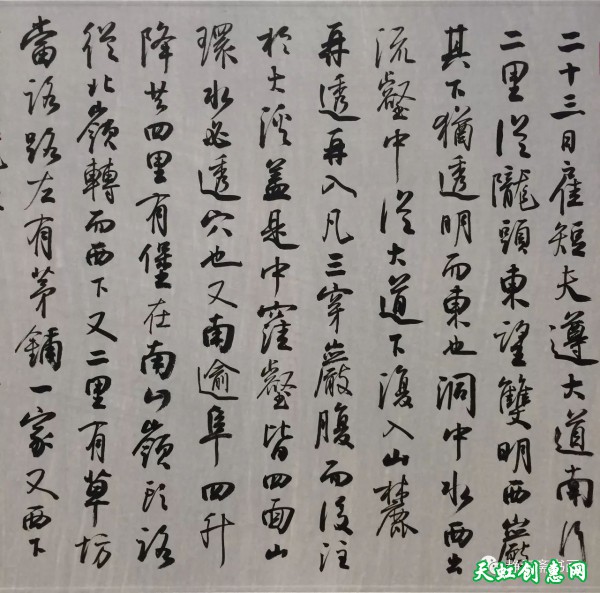 二十三日雇短夫遵大道南行
二里從隴頭東望雙明西巖
其下猶透明而東也洞中水西出
流壑中從大道下復入山麓
再透再入凡三穿巖腹而後注
於大溪蓋是中窪壑皆四面山
環水必透穴也又南逾阜四升
降共四里有堡在南山嶺頭路
從北嶺轉而西下又二里有草坊
當路路左有茅鋪一家又西下
天虹创惠网